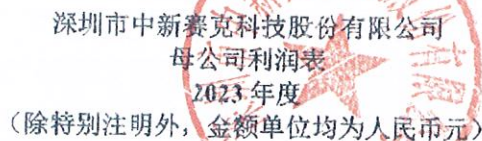 深圳市中新赛克科技股份有限公司
母公司利润表
2023 年度
（除特别注明外，金额单位均为人民币元）